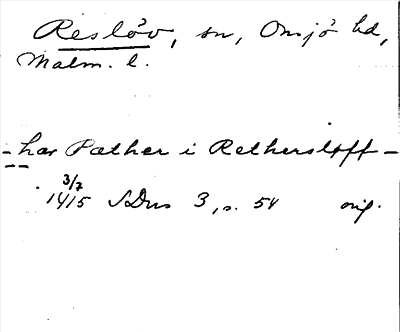 Reslöv, sn, Onsjö hd,
Malm. l.
- har Pæther i Rethersløff -
3/7
1415 SDns 3, s. 54 orig.